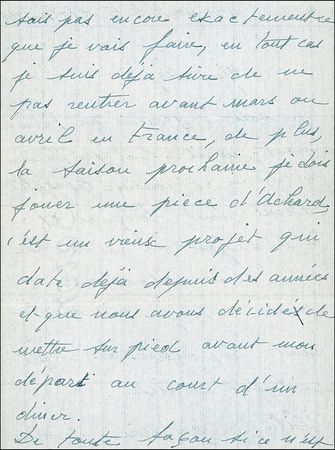 sais pas encore exactement ce
que je vais faire, en tout cas
je suis déjà sûre de ne
pas rentrer avant mars ou
avril en France, de plus,
la saison prochaine je dois
jouer une pièce d'Achard,
c'est un vieux projet qui
date déjà depuis des années
et que nous avons décidés de
mettre sur pied avant mon
départ au court d'un
diner.
De toute façon si ce n'est